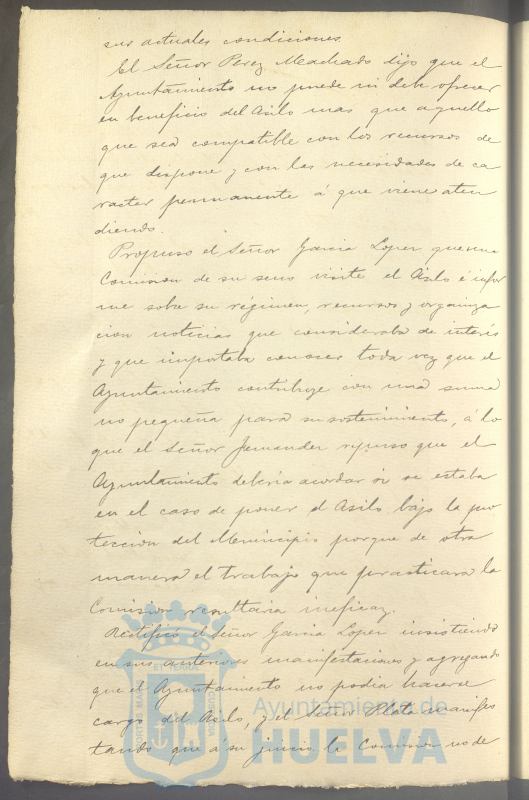 sus actuales condiciones.
El Señor Perez Machado dijo que el
Ayuntamiento no puede ni debe ofrecer
en beneficio del Asilo mas que aquello
que sea compatible con los recursos de
que dispone y con las necesidades de ca
racter permanente á que viene aten
diendo.
Propuso el Señor Garcia Lopez que una
Comision de su seno visite el Asilo é infor
me sobre su régimen, recursos y organiza
cion noticias que consideraba de interés
y que importaba conocer toda vez que el
Ayuntamiento contribuye con una suma
no pequeña para su sostenimiento, á lo
que el Señor Fernandez repuso que el
Ayuntamiento deberia acordar si se estaba
en el caso de poner el Asilo bajo la pro
teccion del Municipio porque de otra
manera el trabajo que practicara la
Comision resultaria ineficaz.
Rectificó el Señor Garcia Lopez insistiendo
en sus anteriores manifestaciones y agregando
que el Ayuntamiento no podia hacerse
cargo del Asilo, y el Señor Mata manifes
tando que a su juicio la Comision no de
Ayuntamiento de
HUELVA
PORTUS MARIS
ET TERRÆ
CUSTODIA